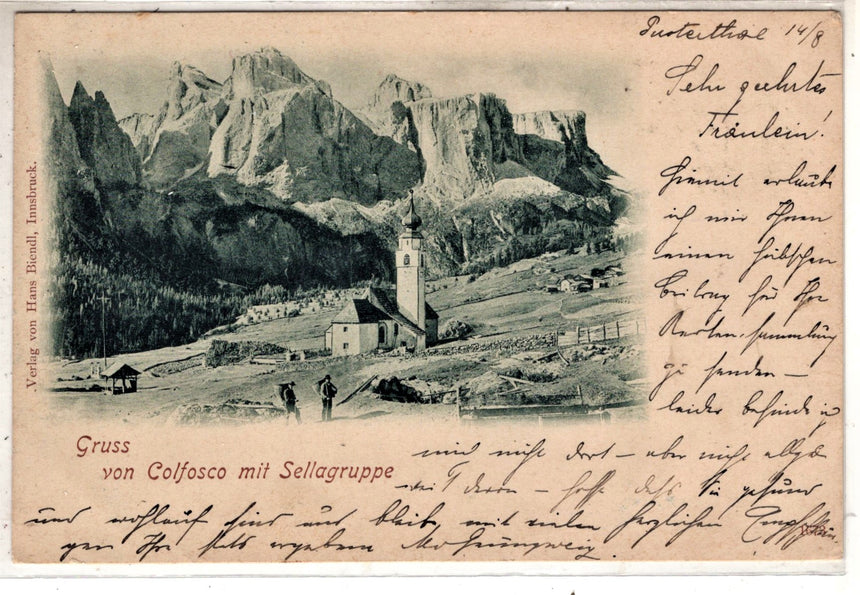 Verlag von Hans Biendl, Innsbruck.
Pusterthal 14/8
Sehr geehrtes
Fräulein!
Hiemit erlaube
ich mir Ihnen
einen hübschen
Beitrag für Ihre
Karten-sammlung
zu senden —
leider befinde ich
mich nicht dort — aber nicht allzu
weit davon — hoffe dass Sie gesund
und wohlauf sind und bleibe mit vielen herzlichen
Ihr stets ergebener
Gruss
von Colfosco mit Sellagruppe